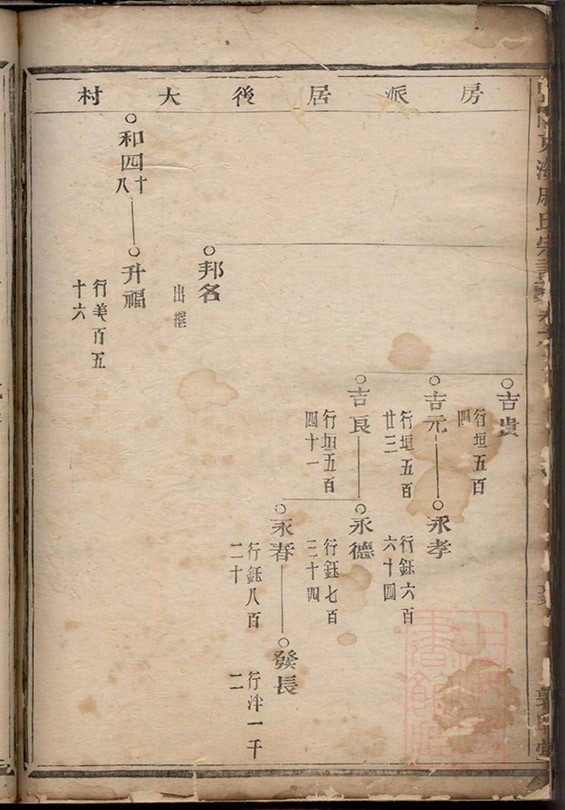 房派居後大村
吉貴
行垣五百
四
吉元
行垣五百
廿三
永孝
行鈺六百
六十四
吉良
行垣五百
四十一
永德
行鈺七百
三十四
永春
行鈺八百
二十
發長
行泮一千
二
邦名
出繼
和四十八
升福
行美百五
十六